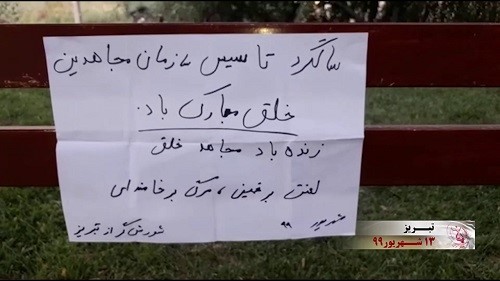 سالگرد تاسیس سازمان مجاهدین
خلق مبارک باد.
زنده باد مجاهد خلق
لعنت بر خمینی، مرگ بر خامنه ای
شهریور ۹۹
شورش گر از تبریز
تبریز
۱۳ شهریور ۹۹